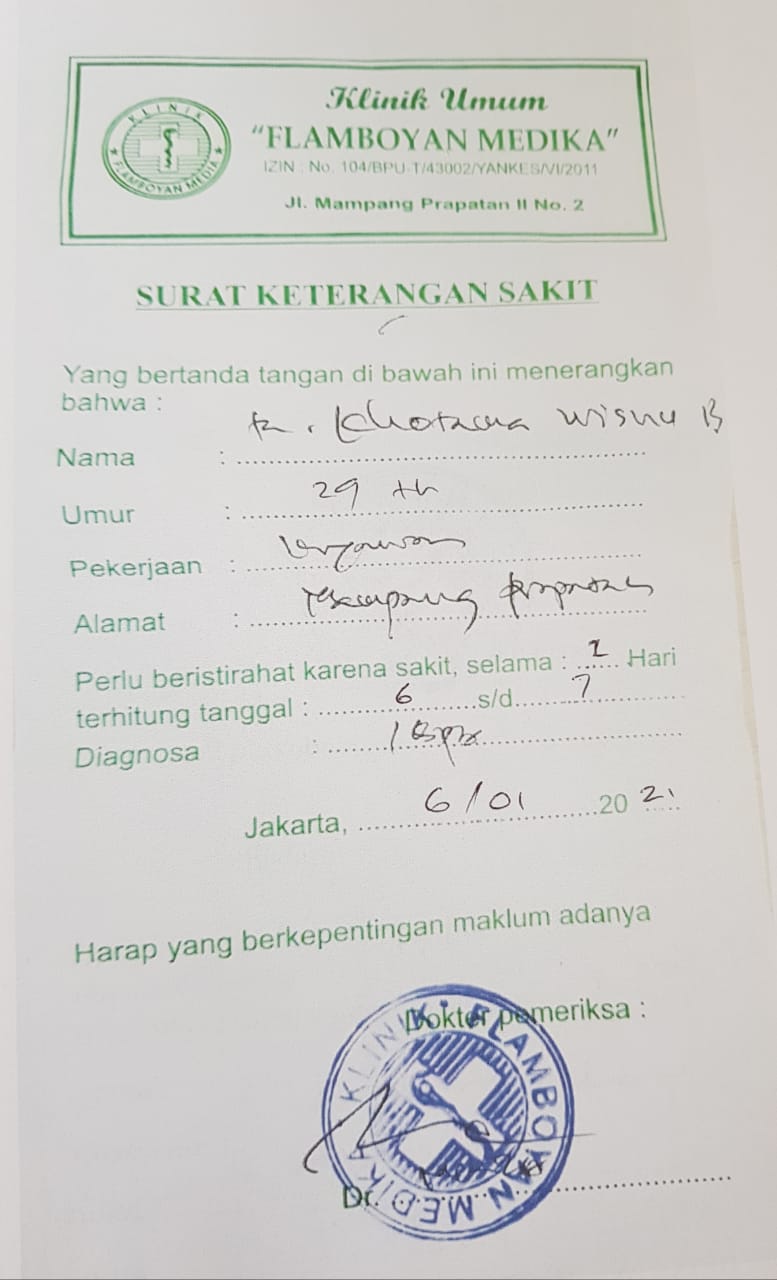 KLINIK
FLAMBOYAN MEDIKA
Klinik Umum
"FLAMBOYAN MEDIKA"
IZIN : No. 104/BPU-T/43002/YANKES/VI/2011
Jl. Mampang Prapatan II No. 2
SURAT KETERANGAN SAKIT
Yang bertanda tangan di bawah ini menerangkan
bahwa :
Nama : tn. wisnu B
Umur : 29 th
Pekerjaan :
Alamat :
Perlu beristirahat karena sakit, selama : Hari
terhitung tanggal : 6 s/d 7
Diagnosa :
Jakarta, 6/01 2021
Harap yang berkepentingan maklum adanya
Dokter pemeriksa :
KLINIK FLAMBOYAN MEDIKA
Dr.